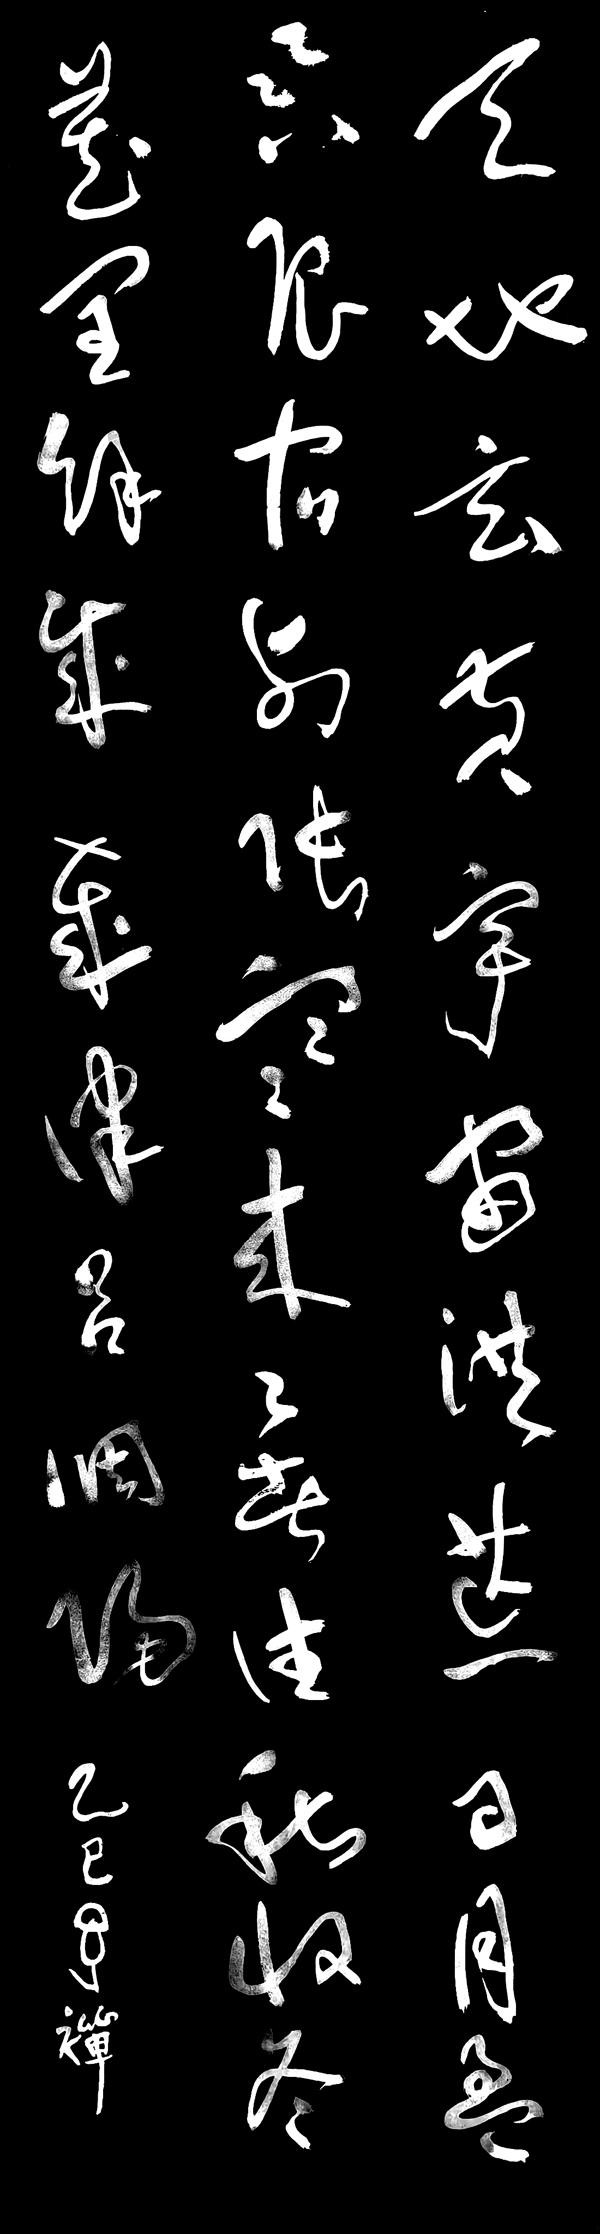 天地玄黄宇宙洪荒日月盈
昃辰宿列張寒来暑往秋收冬
藏閏餘成歲律吕調陽
乙巳 禪